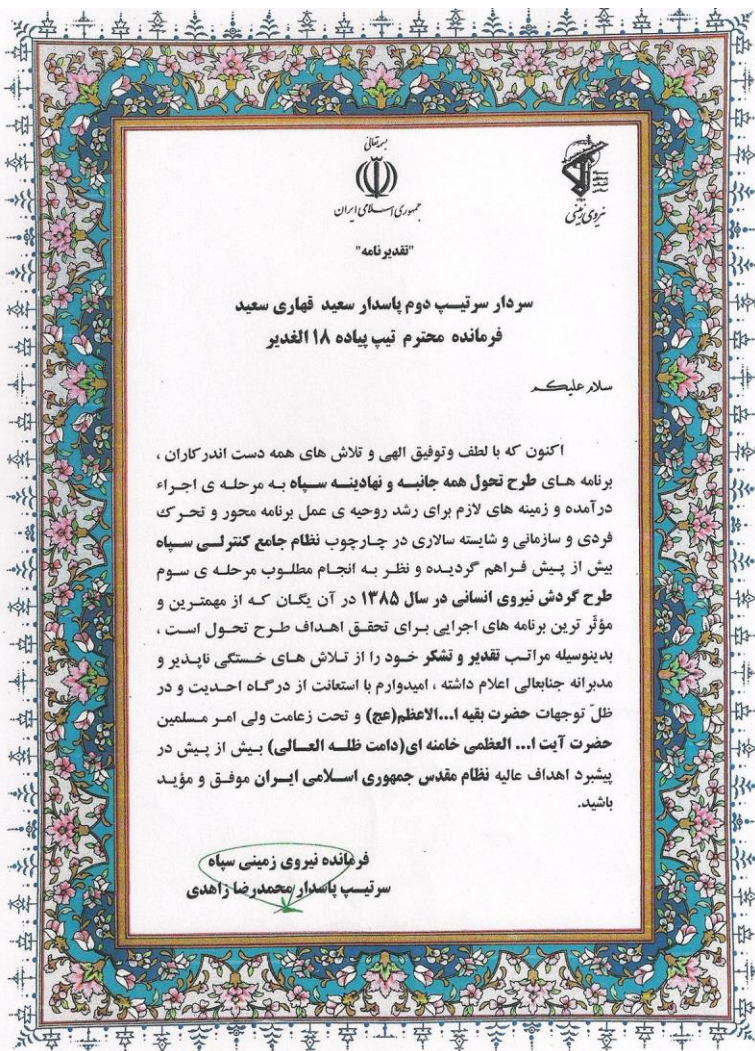 بسمه تعالی
جمهوری اسلامی ایران
نیروی زمینی
"تقدیر نامه"
سردار سرتیـــپ دوم پاسدار سعید قهاری سعید
فرمانده محترم تیپ پیاده ۱۸ الغدیر
سلام علیکـــم
اکنون که با لطف وتوفیق الهی و تلاش های همه دست اندرکاران ،
برنامه هـای طرح تحول همه جانبـه و نهادینـه سـپاه بـه مرحلـه ی اجـراء
درآمده و زمینه های لازم برای رشد روحیه ی عمل برنامه محور و تحـرک
فردی و سازمانی و شایسته سالاری در چـارچوب نظام جامع کنترلـی سـپاه
بیش از پـیش فـراهم گردیـده و نظـر بـه انجـام مطلـوب مرحلـه ی سـوم
طرح گردش نیروی انسانی در سال ۱۳۸۵ در آن یگان کـه از مهمتـرین و
مؤثّر ترین برنامه های اجرایی بـرای تحقـق اهـداف طـرح تحـول اسـت ،
بدینوسیله مراتـب تقدیر و تشکر خـود را از تـلاش هـای خـستگی ناپـذیر و
مدبرانه جنابعالی اعلام داشته ، امیدوارم با استعانت از درگـاه احـدیت و در
ظلّ توجهات حضرت بقیه ا...الاعظم(عج) و تحت زعامت ولی امـر مـسلمین
حضرت آیت ا... العظمی خامنه ای(دامت ظلـه العـــالی) بـیش از پـیش در
پیشبرد اهداف عالیه نظام مقدس جمهوری اسـلامی ایـــران موفـق و مؤیـد
باشید.
فرمانده نیروی زمینی سپاه
سرتیـــپ پاسدار محمدرضا زاهدی